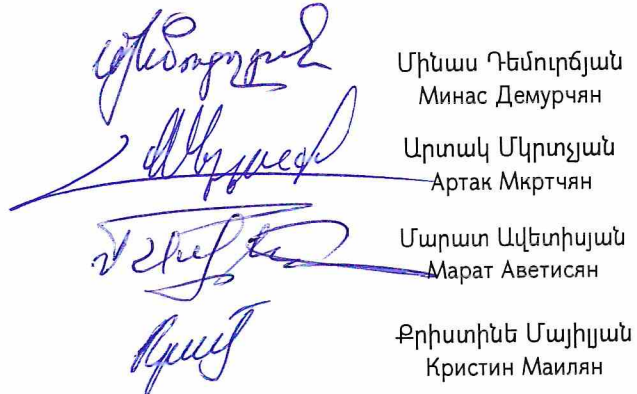 Մինաս Դեմուրճյան
Минас Демурчян
Արտակ Մկրտչյան
Артак Мкртчян
Մարատ Ավետիսյան
Марат Аветисян
Քրիստինե Մայիլյան
Кристин Маилян